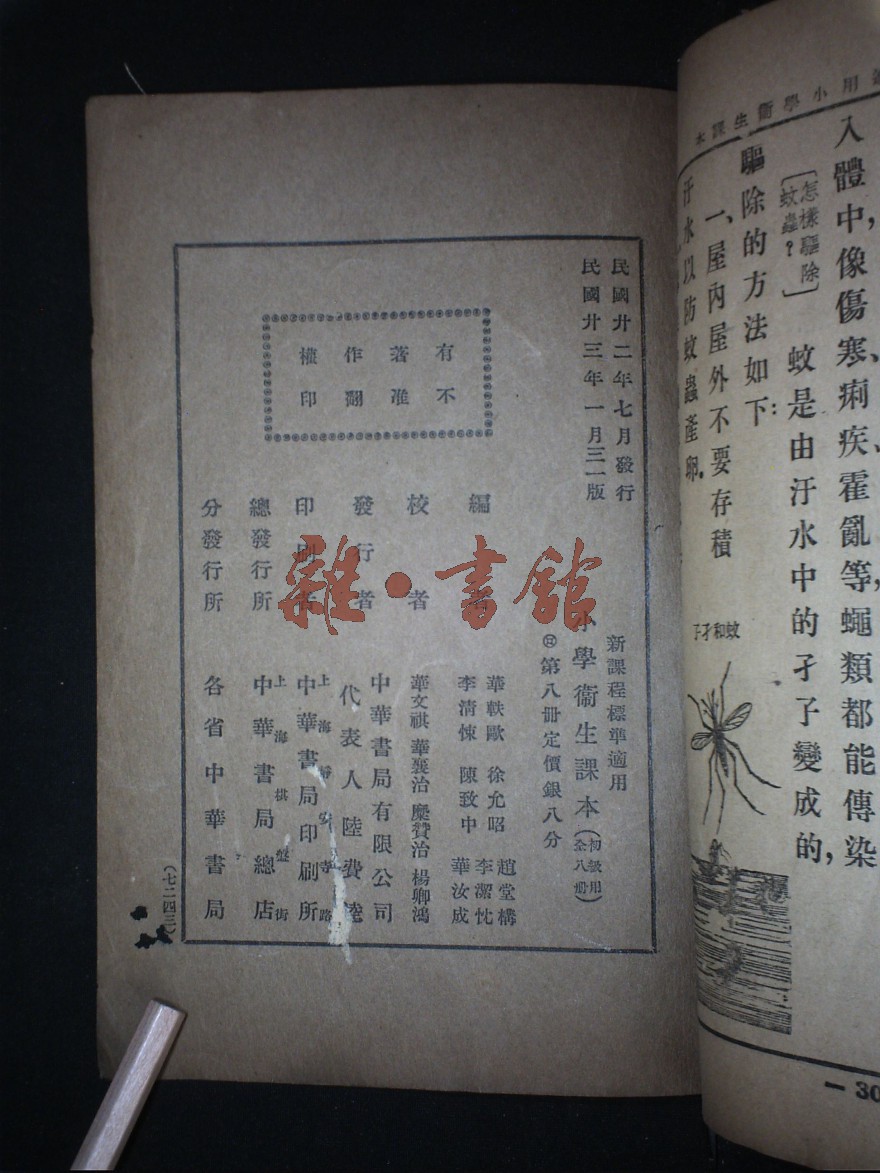 用小學衞生課本
入體中，像傷寒、痢疾、霍亂等，蠅類都能傳染
〔怎樣驅除蚊蟲？〕　蚊是由汙水中的孑孓變成的，
驅除的方法如下：
一、屋內屋外不要存積
汙水以防蚊蟲產卵。
蚊和孑孓
— 30
民國廿二年七月發行
民國廿三年一月三一版
有著作權
不准翻印
新課程標準適用
小學衞生課本（初級用全八册）
第八册定價銀八分
編者
華軼歐　徐允昭　趙堂構
李潔忱
李清悚　陳致中　華汝成
校者
華文祺　華襄治　糜贊治　楊卿鴻
發行者
中華書局有限公司
代表人陸費逵
印刷者
上海靜安寺路
中華書局印刷所
總發行所
上海棋盤街
中華書局總店
分發行所
各省中華書局
（七二四三）
雜·書館